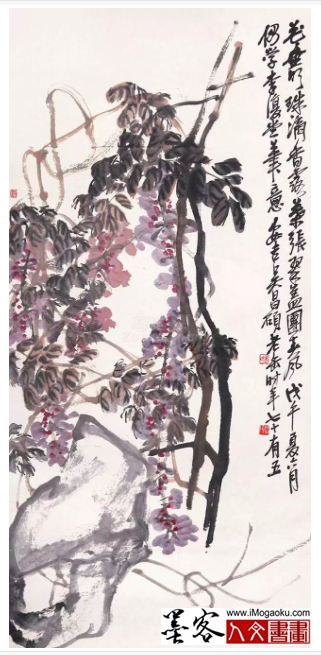 花垂明珠滴香露葉張翠蓋團春風戊午夏六月
仿學李復堂筆意安吉吳昌碩老缶時年七十有五
www.iMogaoku.com
墨客
人文書畫